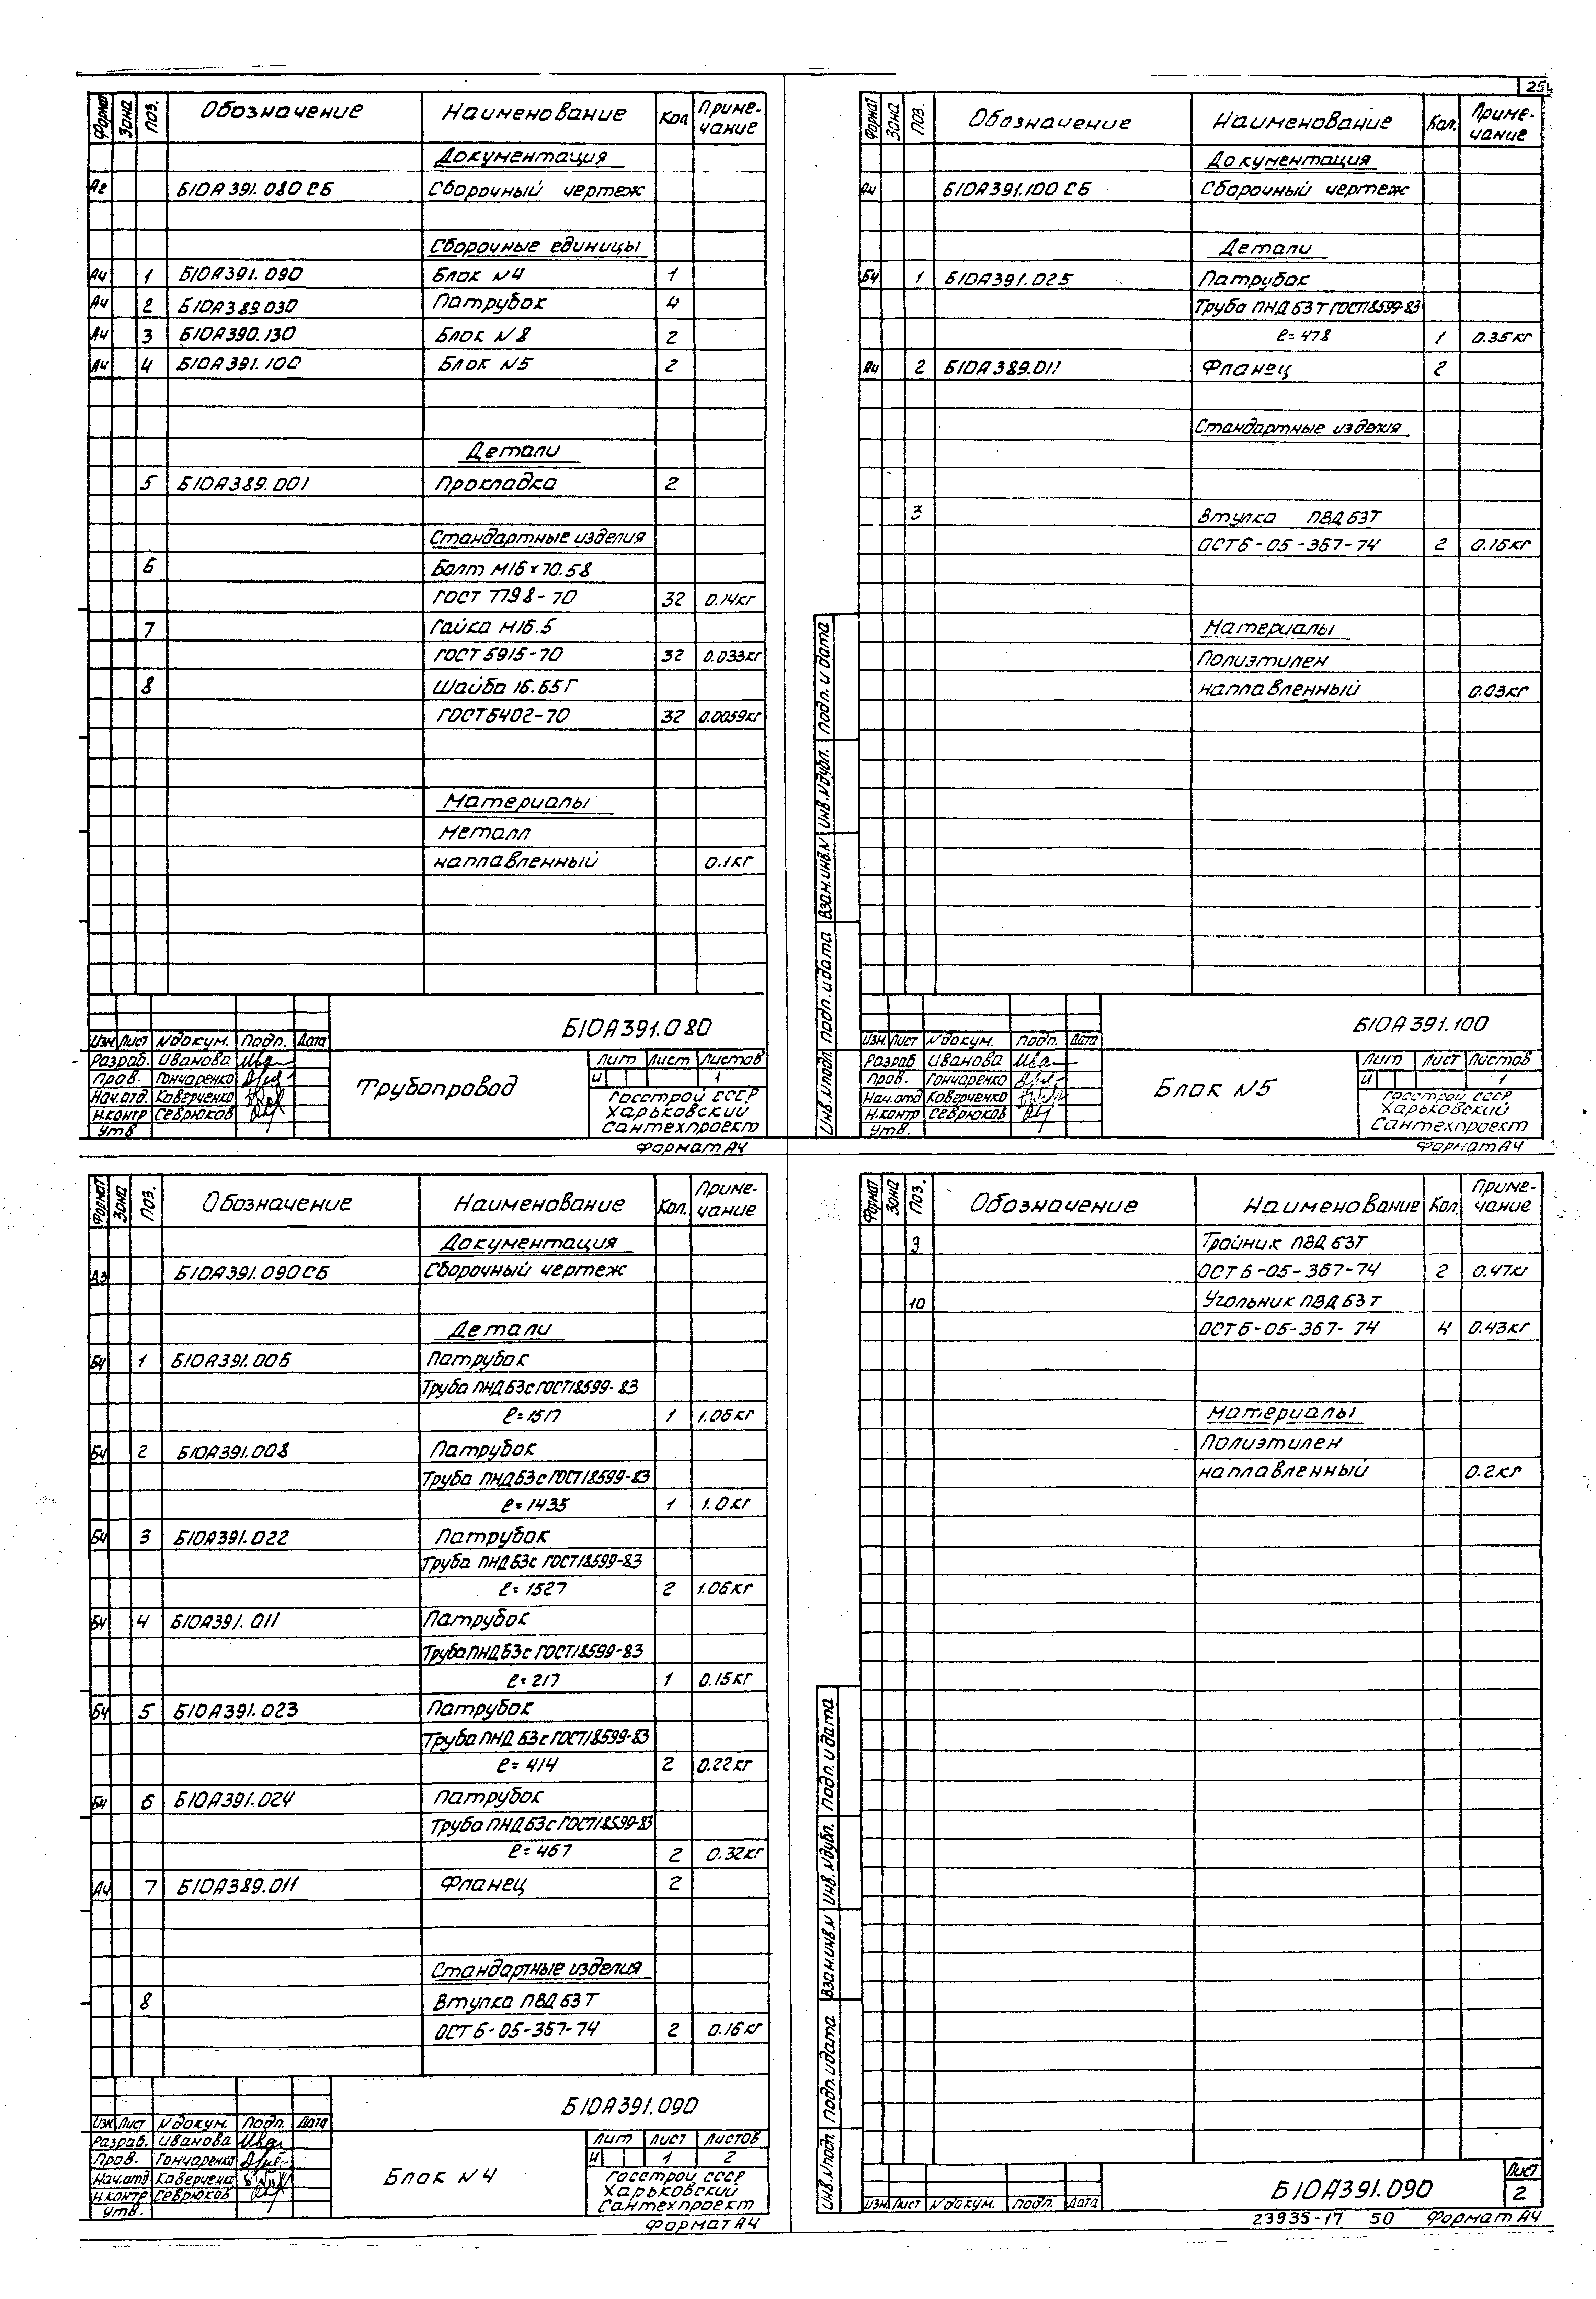 25
Формат Зона Поз. Обозначение Наименование Кол Приме-чание
Документация
А2 Б10А391.080СБ Сборочный чертеж
Сборочные единицы
А4 1 Б10А391.090 Блок N4 1
А4 2 Б10А389.030 Патрубок 4
А4 3 Б10А390.130 Блок N8 2
А4 4 Б10А391.100 Блок N5 2
Детали
5 Б10А389.001 Прокладка 2
Стандартные изделия
6 Болт М16×70.58
ГОСТ 7798-70 32 0.14кг
7 Гайка М16.5
ГОСТ 5915-70 32 0.033кг
8 Шайба 16.65Г
ГОСТ6402-70 32 0.0059кг
Материалы
Металл
наплавленный 0.1кг
Б10А391.080
Изм. Лист N докум. Подп. Дата
Разраб. Иванова
Пров. Гончаренко
Нач.отд. Коверченко
Н.контр Севрюков
Утв
Трубопровод
Лит Лист Листов
И 1
Госстрой СССР
Харьковский
Сантехпроект
Формат А4
Формат Зона Поз. Обозначение Наименование Кол. Приме-чание
Документация
А4 Б10А391.100СБ Сборочный чертеж
Детали
БЧ 1 Б10А391.025 Патрубок
Труба ПНД 63 Т ГОСТ18599-83
ℓ=478 1 0.35кг
А4 2 Б10А389.011 Фланец 2
Стандартные изделия
3 Втулка ПВД 63Т
ОСТ6-05-367-74 2 0.16кг
Материалы
Полиэтилен
наплавленный 0.03кг
Инв.N подл. Подп. и дата Взам.инв.N Инв.N дубл. Подп. и дата
Б10А391.100
Изм. Лист N докум. Подп. Дата
Разраб Иванова
Пров. Гончаренко
Нач.отд Коверченко
Н.контр Севрюков
Утв.
Блок N5
Лит Лист Листов
И 1
Госстрой СССР
Харьковский
Сантехпроект
Формат А4
Формат Зона Поз. Обозначение Наименование Кол. Приме-чание
Документация
А3 Б10А391.090СБ Сборочный чертеж
Детали
БЧ 1 Б10А391.006 Патрубок
Труба ПНД 63с ГОСТ18599-83
ℓ=1517 1 1.06кг
БЧ 2 Б10А391.008 Патрубок
Труба ПНД 63с ГОСТ18599-83
ℓ=1435 1 1.0кг
БЧ 3 Б10А391.022 Патрубок
Труба ПНД 63с ГОСТ18599-83
ℓ=1527 2 1.06кг
БЧ 4 Б10А391.011 Патрубок
Труба ПНД 63с ГОСТ18599-83
ℓ=217 1 0.15кг
БЧ 5 Б10А391.023 Патрубок
Труба ПНД 63с ГОСТ18599-83
ℓ=414 2 0.22кг
БЧ 6 Б10А391.024 Патрубок
Труба ПНД 63с ГОСТ18599-83
ℓ=467 2 0.32кг
А4 7 Б10А389.011 Фланец 2
Стандартные изделия
8 Втулка ПВД 63Т
ОСТ 6-05-367-74 2 0.16кг
Б10А391.090
Изм. Лист N докум. Подп. Дата
Разраб. Иванова
Пров. Гончаренко
Нач.отд Коверченко
Н.контр Севрюков
Утв.
Блок N4
Лит Лист Листов
И 1 2
Госстрой СССР
Харьковский
Сантехпроект
Формат А4
Формат Зона Поз. Обозначение Наименование Кол. Приме-чание
9 Тройник ПВД 63Т
ОСТ 6-05-367-74 2 0.47кг
10 Угольник ПВД 63Т
ОСТ6-05-367-74 4 0.43кг
Материалы
Полиэтилен
наплавленный 0.2кг
Инв.N подл. Подп. и дата Взам.инв.N Инв.N дубл. Подп. и дата
Изм. Лист N докум. Подп. Дата
Б10А391.090
Лист
2
23935-17 50 Формат А4